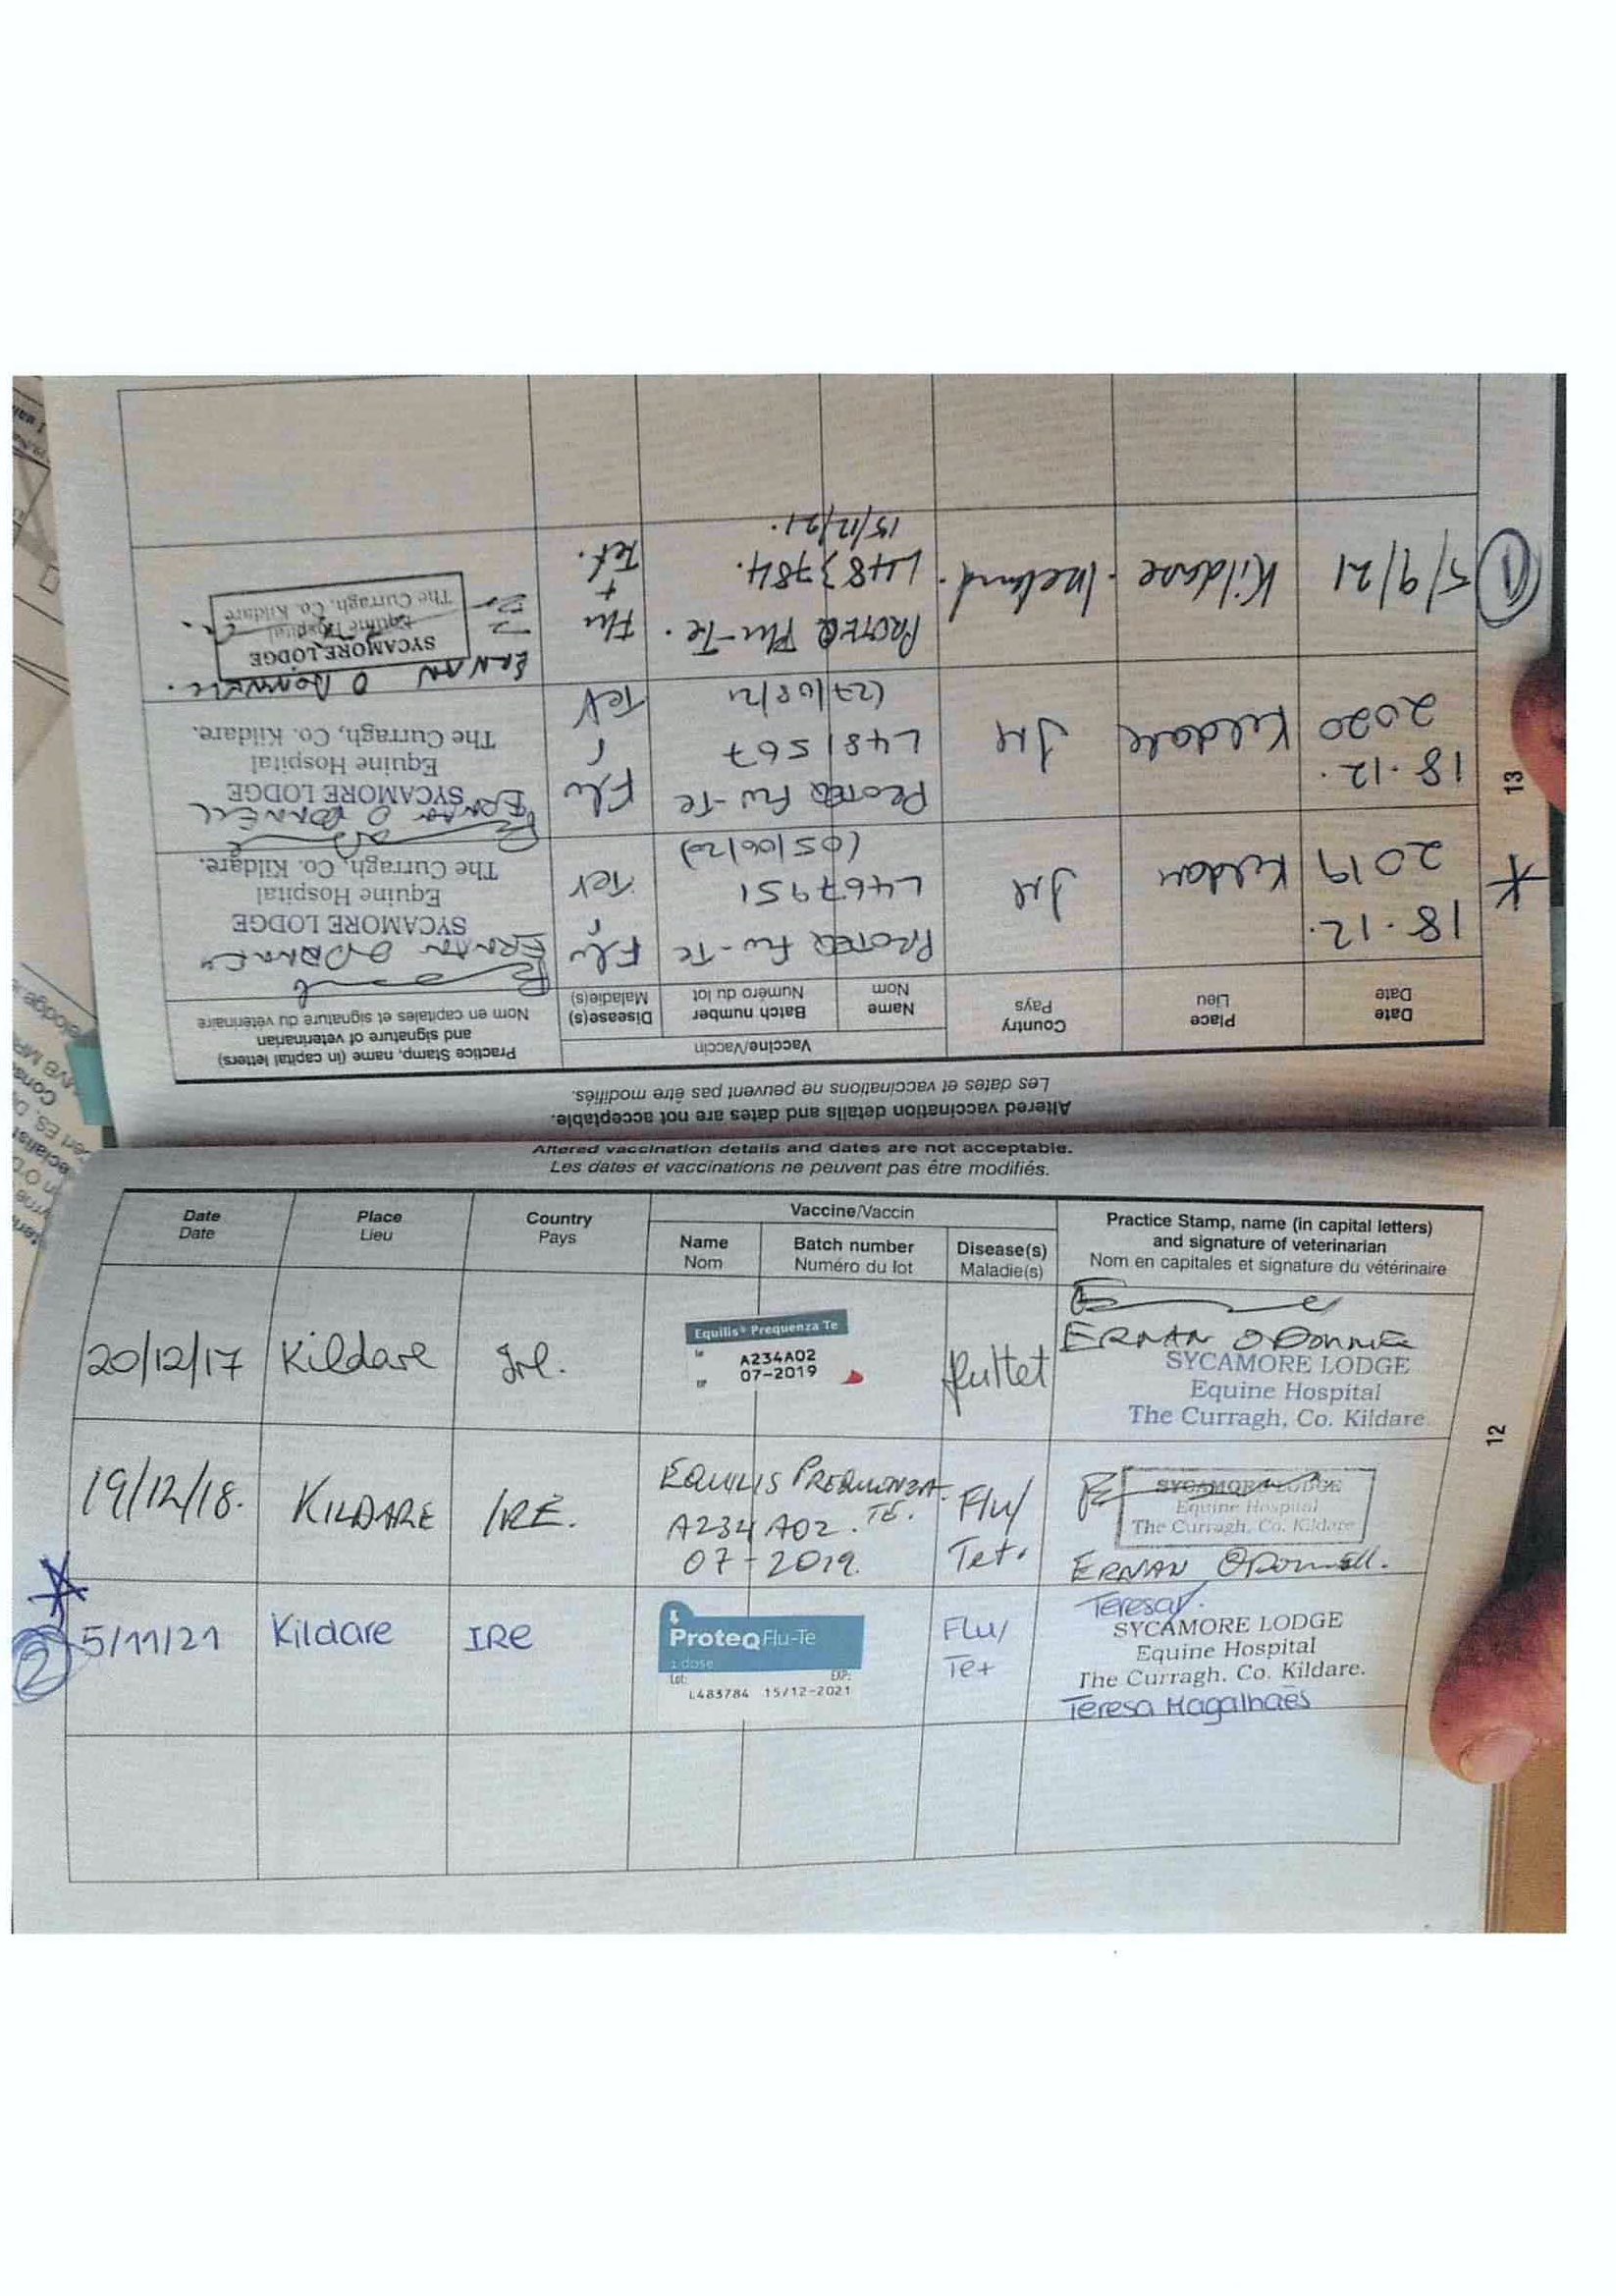 Altered vaccination details and dates are not acceptable.
Les dates et vaccinations ne peuvent pas être modifiés.
Date
Date
Place
Lieu
Country
Pays
Vaccine/Vaccin
Name
Nom
Batch number
Numéro du lot
Disease(s)
Maladie(s)
Practice Stamp, name (in capital letters)
and signature of veterinarian
Nom en capitales et signature du vétérinaire
20/12/17
Kildare
Irl.
Equilis® Prequenza Te
A234A02
07-2019
flu/tet
ERNAN
SYCAMORE LODGE
Equine Hospital
The Curragh, Co. Kildare
19/12/18.
KILDARE
IRE.
EQUILIS PREQUENZA
TE.
A234A02.
07-2019.
Flu/
Tet.
SYCAMORE LODGE
Equine Hospital
The Curragh, Co. Kildare
ERNAN O'Donnell.
2
5/11/21
Kildare
IRe
ProteqFlu-Te
1 dose
Lot:
EXP:
L483784 15/12-2021
Flu/
Tet
SYCAMORE LODGE
Equine Hospital
The Curragh. Co. Kildare.
Teresa Magalhaes
12
Altered vaccination details and dates are not acceptable.
Les dates et vaccinations ne peuvent pas être modifiés.
Date
Date
Place
Lieu
Country
Pays
Vaccine/Vaccin
Name
Nom
Batch number
Numéro du lot
Disease(s)
Maladie(s)
Practice Stamp, name (in capital letters)
and signature of veterinarian
Nom en capitales et signature du vétérinaire
18.12.
2019
Kildare
Irl
PROTEQ Flu-Te
L467951
(05/06/20)
Flu
Tet
ERNAN
SYCAMORE LODGE
Equine Hospital
The Curragh, Co. Kildare.
18.12.
2020
Kildare
Irl
PROTEQ Flu-Te
L481567
Flu
Tet
ERNAN O DONNELL
SYCAMORE LODGE
Equine Hospital
The Curragh, Co. Kildare.
1
5/9/21
Kildare.
Ireland.
PROTEQ Flu-Te.
L483784.
15/12/21.
Flu
+
Tet.
ERNAN O DONNELL.
SYCAMORE LODGE
Equine Hospital
The Curragh. Co. Kildare
13